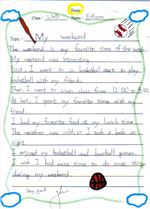 Essay
Class: Name: Edison
Topic: My weekend
The weekend is my favorite time of the week.
My weekend was interesting.
First, I went to a basketball court to play
basketball with my friends.
Then, I went to swim class from
At last, I spent my favorite time with my
friend.
I had my favorite food at my lunch time.
The weather was cold, so I took a bath at
night.
I enjoyed my basketball and baseball games.
I wish I had more time to do more things
during my weekend.
Very good